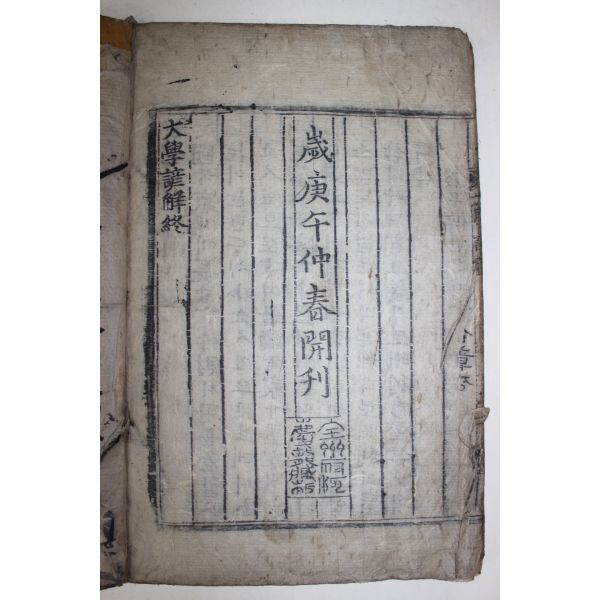 歲庚午仲春開刊
全州河慶龍藏板
大學諺解終